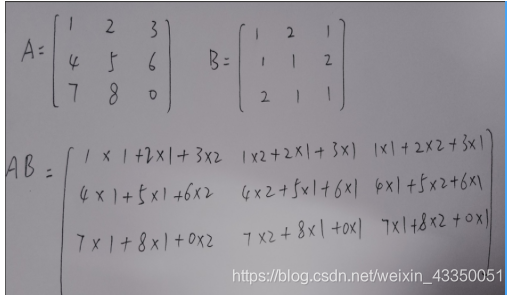 A= 1 2 3
4 5 6
7 8 0
B= 1 2 1
1 1 2
2 1 1
AB = 1×1+2×1+3×2 1×2+2×1+3×1 1×1+2×2+3×1
4×1+5×1+6×2 4×2+5×1+6×1 4×1+5×2+6×1
7×1+8×1+0×2 7×2+8×1+0×1 7×1+8×2+0×1
https://blog.csdn.net/weixin_43350051